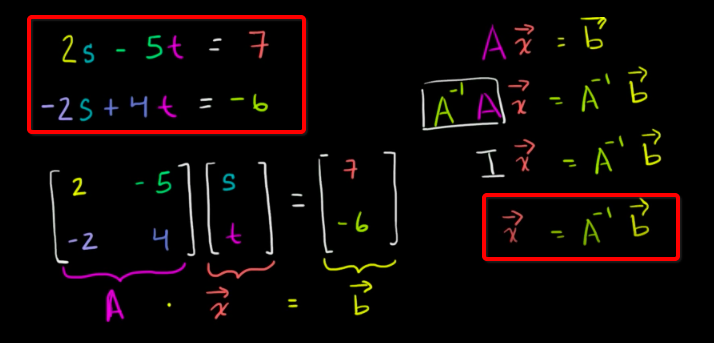 2s - 5t = 7
-2s + 4t = -6
[2 -5] [s] = [7]
[-2 4] [t] [-6]
A · x⃗ = b⃗
A x⃗ = b⃗
A⁻¹ A x⃗ = A⁻¹ b⃗
I x⃗ = A⁻¹ b⃗
x⃗ = A⁻¹ b⃗